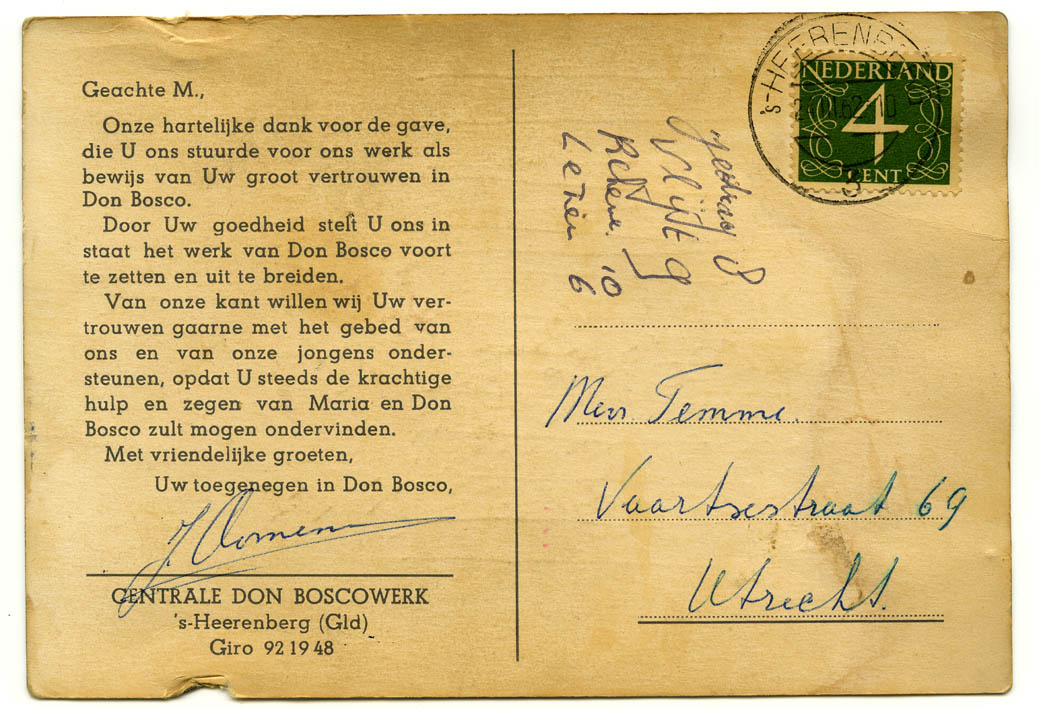 Geachte M.,
Onze hartelijke dank voor de gave,
die U ons stuurde voor ons werk als
bewijs van Uw groot vertrouwen in
Don Bosco.
Door Uw goedheid stelt U ons in
staat het werk van Don Bosco voort
te zetten en uit te breiden.
Van onze kant willen wij Uw ver-
trouwen gaarne met het gebed van
ons en van onze jongens onder-
steunen, opdat U steeds de krachtige
hulp en zegen van Maria en Don
Bosco zult mogen ondervinden.
Met vriendelijke groeten,
Uw toegenegen in Don Bosco,
CENTRALE DON BOSCOWERK
's-Heerenberg (Gld)
Giro 92 19 48
NEDERLAND
4
CENT
gedrag 8
Vlijt 9
10
Lezen 6
Temme.
Vaartsestraat 69
Utrecht.